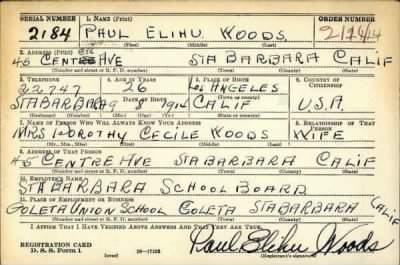 SERIAL NUMBER 1. NAME (Print) ORDER NUMBER
2184 PAUL ELIHU WOODS
(First) (Middle) (Last)
2. ADDRESS (Print)
45 CENTRE AVE STA BARBARA CALIF
(Number and street or R. F. D. number) (Town) (County) (State)
3. TELEPHONE 4. AGE IN YEARS 5. PLACE OF BIRTH 6. COUNTRY OF CITIZENSHIP
22747 26 LOS ANGELES
STABARBARA 9 1914 CALIF U.S.A.
7. NAME OF PERSON WHO WILL ALWAYS KNOW YOUR ADDRESS 8. RELATIONSHIP OF THAT PERSON
MRS DOROTHY CECILE WOODS WIFE
(Mr., Mrs., Miss) (First) (Middle) (Last)
9. ADDRESS OF THAT PERSON
45 CENTRE AVE STA BARBARA CALIF
(Number and street or R. F. D. number) (Town) (County) (State)
10. EMPLOYER'S NAME
STA BARBARA SCHOOL BOARD
11. PLACE OF EMPLOYMENT OR BUSINESS
GOLETA UNION SCHOOL GOLETA STA BARBARA CALIF
(Number and street or R. F. D. number) (Town) (County) (State)
I AFFIRM THAT I HAVE VERIFIED ABOVE ANSWERS AND THAT THEY ARE TRUE.
REGISTRATION CARD
D. S. S. Form 1 (over) 16—17105 Paul Elihu Woods
(Registrant's signature)